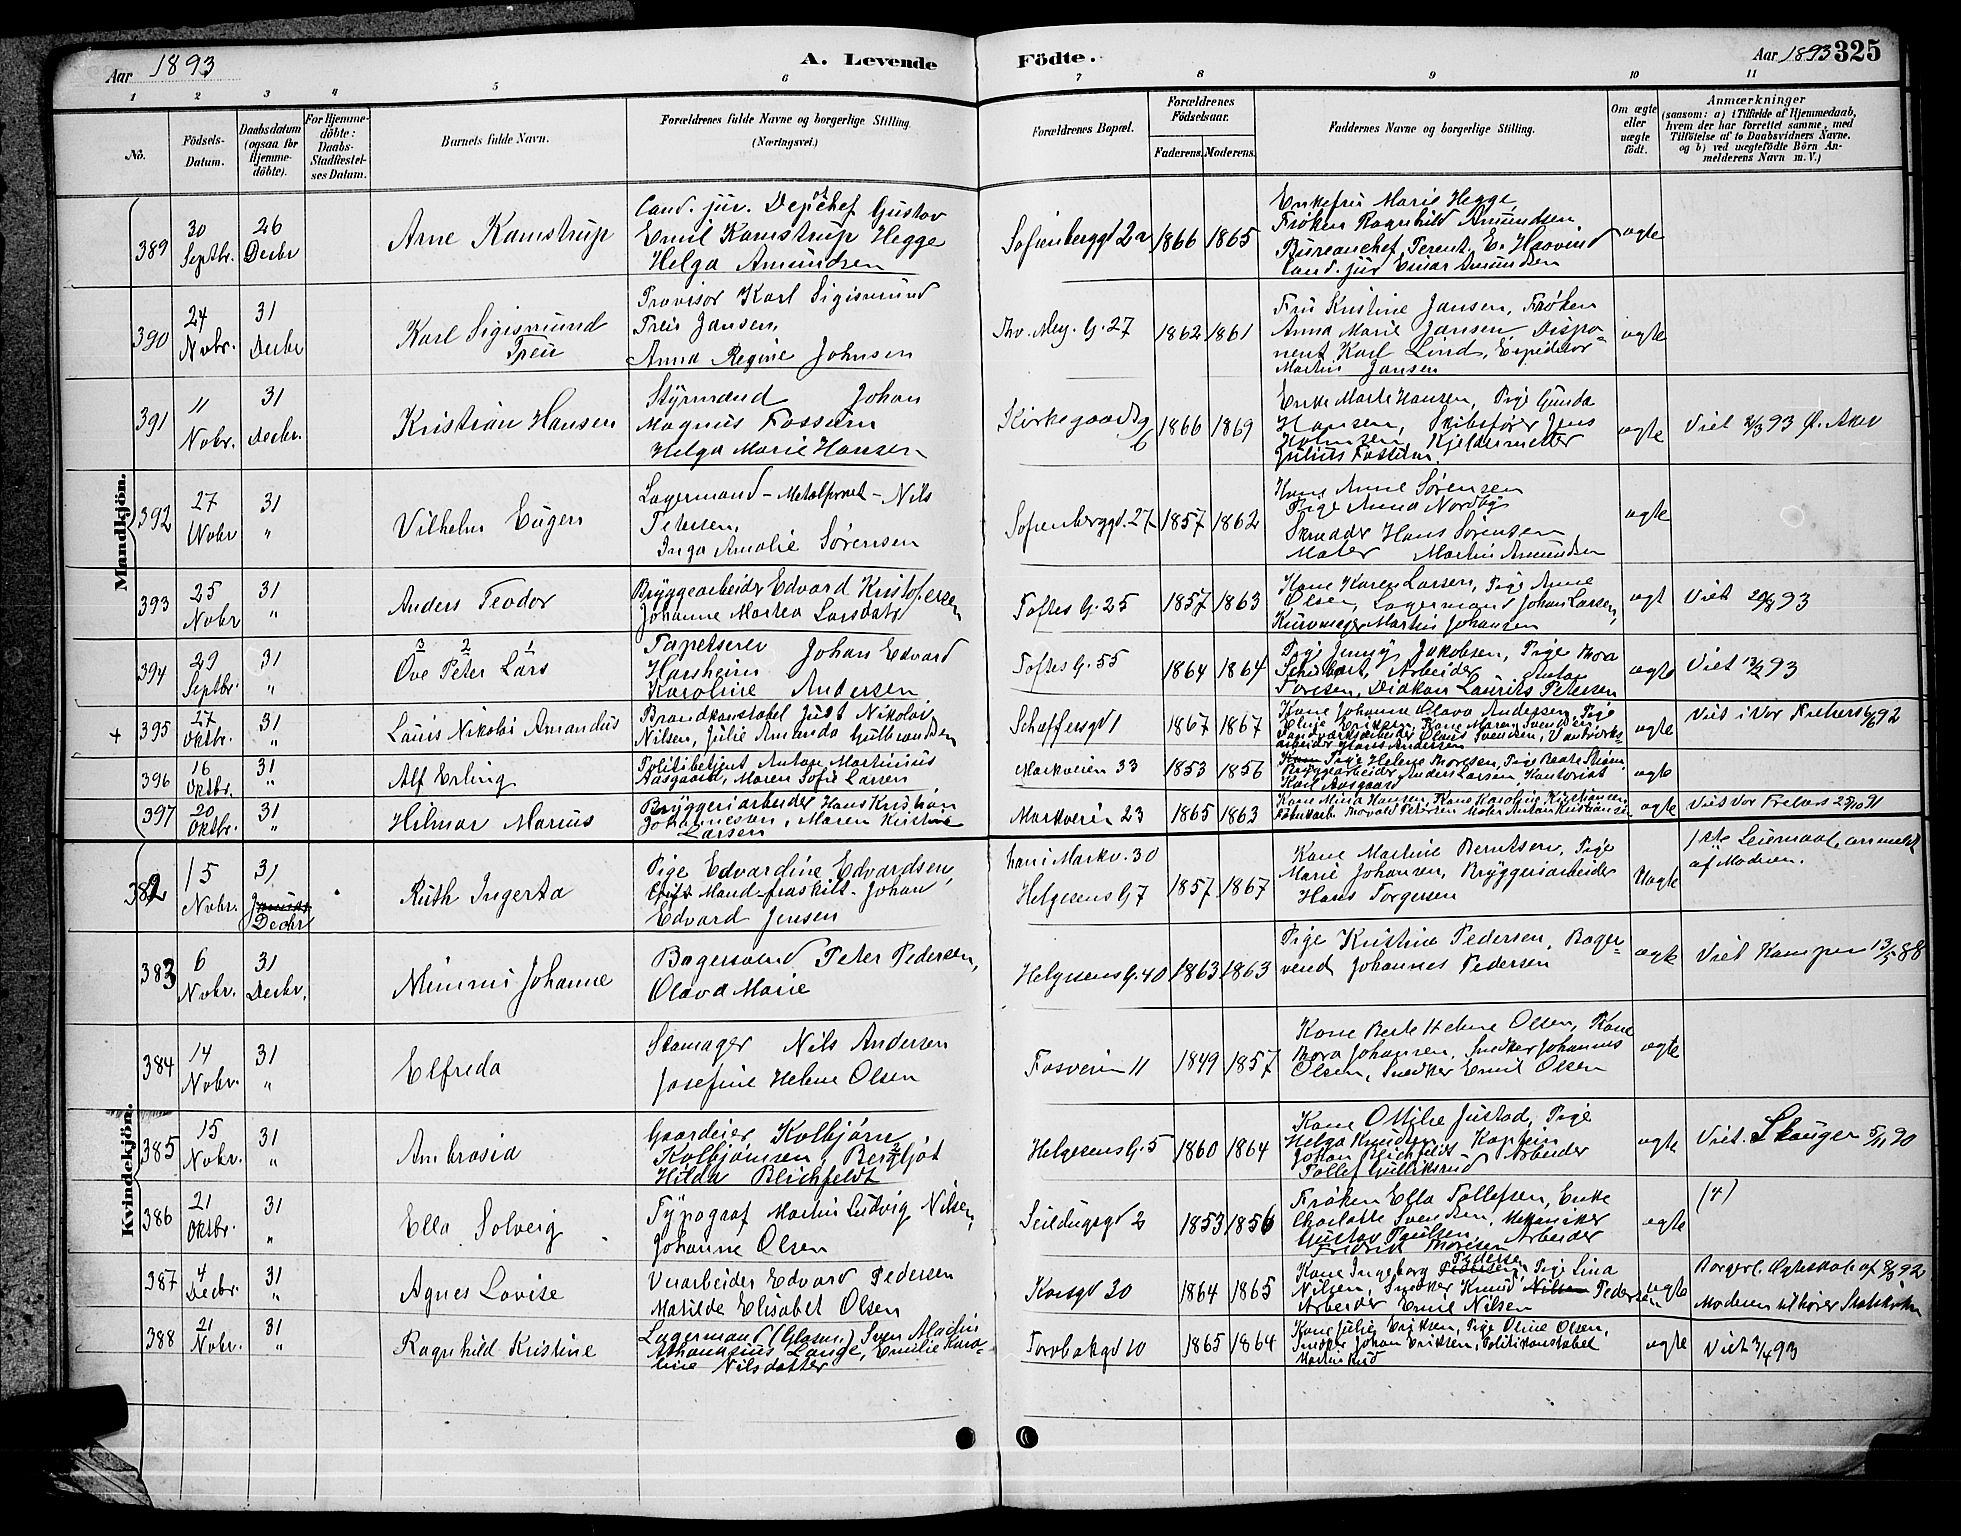 Aar 1893
A. Levende
Födte.
Aar 1893 325
1 2 3 4 5 6 7 8 9 10 11
No.
Födsels-
Datum.
Daabsdatum
(ogsaa for
Hjemme-
döbte).
For Hjemme-
döbte:
Daabs-
Stadfæstel-
ses Datum.
Barnets fulde Navn.
Forældrenes fulde Navne og borgerlige Stilling.
(Næringsvei.)
Forældrenes Bopæl.
Forældrenes
Födselsaar.
Faderens. Moderens.
Faddernes Navne og borgerlige Stilling.
Om ægte
eller
uægte
födt.
Anmærkninger
(saasom: a) i Tilfælde af Hjemmedaab,
hvem der har forrettet samme, med
Tilföielse af to Daabsvidners Navne.
og b) ved uægtefödte Börn An-
melderens Navn m. V.)
Mandkjön.
389
30
Septbr.
26
Decbr
Arne Kamstrup
Cand. jur. Dep. chef Gustav
Emil Kamstrup Hegge
Helga Amundsen
Sofienberggd 2a
1866 1865
Enkefru Marie Hegge,
Frøken Ragnhild Amundsen
Bureauchef Terent. E. Haavind
Cand. jur Einar Amundsen
ægte
390
24
Nobr.
31
Decbr
Karl Sigismund
Treu
Provisor Karl Sigismund
Treu Jansen,
Anna Regine Johnsen
Thv. Mey. G. 27
1862 1861
Fru Kristine Jansen, Frøken
Anna Marie Jansen Dispo-
nent Karl Lind, Expeditør
Martin Jansen
ægte
391
11
Nobr.
31
Decbr.
Kristian Hansen
Styrmand Johan
Magnus Fossum
Helga Marie Hansen
Kirkegaardsg
6
1866 1869
Enke Marte Hansen, Pige Gunda
Hansen, Skibsfører Jens
Holmsen, Kjeldermester
Julius Fossum
ægte
Viet 2/3 93 Ø. Aker
392
27
Nobr
31
"
Vilhelm Eugen
Lagermand – Metalprent – Nils
Petersen,
Inga Amalie Sørensen
Sofienberggd. 27
1857 1862
Kone Anne Sørensen
Pige Anna Nordby
Skrædder Hans Sørensen
Maler Martin Amundsen
ægte
393
25
Nobr
31
"
Anders Teodor
Bryggearbeider Edvard Kristofersen
Johanne Martea Larsdatr
Toftes G. 25
1857 1863
Kone Karen Larsen, Pige Anne
Olsen Lagermand Johan Larsen,
Kurvmager Martin Johansen
ægt
Viet 20/8 93
394
29
Septbr.
31
"
3 2 1
Ove Peter Lars
Tapetserer Johan Edvard
Harsheim
Karoline Andersen
Toftes G. 55
1864 1864
Pige Jenny Jakobsen, Pige Thora
Schubart, Arbeider Anton
Toresen, Diakon Laurits Petersen
ægte
Viet 12/2 93
+ 395
27
Oktbr.
31
"
Lauis Nikolai Amandus
Brandkonstabel Just Nikolai
Nilsen, Julie Amanda Gulbrandsen
Schaffersgd 1
1867 1867
Kone Johanne Olava Andersen, Pige
Eline Eriksen, Kone Maren Svendsen,
Vandværksarbeider Olaus Svendsen, Vandværks-
arbeider Hans Andersen
ægte
Viet i Vor Frelsers 6/6 92
396
16
Oktbr.
31
"
Alf Erling
Politibetjent Anton Martinius
Aasgaard, Maren Sofie Larsen
Markveien 33
1853 1856
Kone Pige Helene Thoresen, Pige Beate Steen,
Bryggearbeider Anders Larsen Kontorist
Karl Aasgaard
ægte
397
20
Oktbr.
31
"
Hilmar Marius
Bryggeriarbeider Hans Kristian
Johannesen, Maren Kristine
Larsen
Markveien 23
1865 1863
Kone Mina Hansen, Kone Karoline Kristiansen
Fabrikarb. Thorvald Petersen Maler Anton Kristiansen
ægte
Viet Vor Frelsers 25/10 91
Kvindekjön.
382
15
Nobr.
31
Januar
Decbr
Ruth Ingerta
Pige Edvardine Edvardsen,
Gift Mand fraskilt Johan
Edvard Jensen
han i Markv. 30
Helgesens G 7
1857 1867
Kone Martine Berntsen, Pige
Marie Johansen, Bryggeriarbeider
Hans Torgersen
Uægte
1ste Leiermaal, anmeldt
af Moderen.
383
6
Nobr.
31
Decbr.
Mimmi Johanne
Bagersvend Peter Pedersen,
Olava Marie
Helgesens G. 40
1863 1863
Pige Kristine Pedersen, Bager-
svend Johannes Pedersen
ægte
Viet Kampen 13/5 88
384
14
Nobr.
31
"
Elfreda
Skomager Nils Andersen
Josefine Helene Olsen
Fosveien 11
1849 1857
Kone Berte Helene Olsen, Kone
Thora Johansen, Snedker Johannes
Olsen, Snedker Emil Olsen
ægte
385
15
Nobr.
31
"
Ambrosia
Gaardeier Kolbjørn
Kolbjørnsen, Bergljot
Hilda Blichfeldt
Helgesens G. 5
1860 1864
Kone Ottilie Justad, Pige
Helga Knudsen Kaptein
Johan Blichfeldt Arbeider
Tollef Gulliksrud
ægte
Viet. Skauger 5/11 90
386
21
Oktbr.
31
"
Ella Solveig
Typograf Martin Ludvig Nilsen,
Johanne Olsen
Seildugsgd 2
1853 1856
Frøken Ella Tollefsen, Enke
Charlotte Svendsen, Mekaniker
Gustav Paulsen, Arbeider
Fredrik Thoresen
ægte
(4)
387
4
Decbr.
31
"
Agnes Lovise
Veiarbeider Edvard Pedersen
Matilde Elisabet Olsen
Korsgd 20
1864 1865
Pedersen
Kone Ingeborg Pige Lina
Nilsen, Snedker Knud Nilsen Pedersen
Arbeider Emil Nilsen
ægte
Borgerl. Ægteskab af 8/3 92
Moderen tilhører Statskirken
388
21
Nobr.
31
"
Ragnhild Kristine
Lagermand (Glasm.) Sven Aladin
Athanasius Lange, Emilie Karo-
line Nilsdatter
Torvbakgd 10
1865 1864
Kone Julie Eriksen, Pige Oline Olsen,
Snedker Johan Eriksen, Politikonstabel
Martin Rud
ægte
Viet 3/4 93